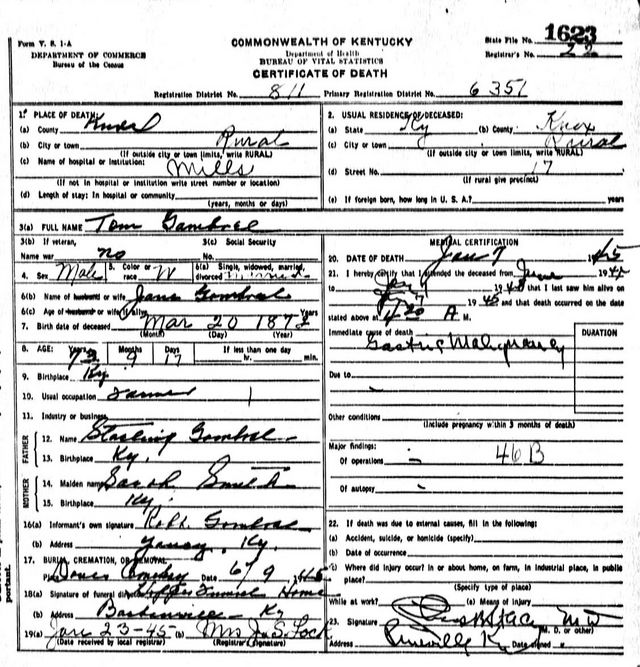 1623
Form V. S. 1-A
COMMONWEALTH OF KENTUCKY
State File No.
DEPARTMENT OF COMMERCE
Department of Health
Registrar's No. 22
Bureau of the Census
BUREAU OF VITAL STATISTICS
CERTIFICATE OF DEATH
Registration District No. 811 Primary Registration District No. 6351
1. PLACE OF DEATH:
(a) County Knox
(b) City or town Rural
(If outside city or town limits, write RURAL)
(c) Name of hospital or institution: Mills
(If not in hospital or institution write street number or location)
(d) Length of stay: In hospital or community
(years, months or days)
2. USUAL RESIDENCE OF DECEASED:
(a) State Ky (b) County Knox
(c) City or town Rural
(If outside city or town limits, write RURAL)
(d) Street No. 17
(If rural give precinct)
(e) If foreign born, how long in U. S. A.? years
3(a) FULL NAME Tom Gambrel
3(b) If veteran, 3(c) Social Security
Name war no No.
4. Sex Male 5. Color or race W 6(a) Single, widowed, married, divorced
6(b) Name of husband or wife Jane Gambrel
6(c) Age of husband or wife if alive Years
7. Birth date of deceased Mar 20 187
(Month) (Day) (Year)
8. AGE: Years Months Days If less than one day
9 17 hr. min.
9. Birthplace Ky
10. Usual occupation Farmer
11. Industry or business
FATHER
12. Name Gambrel
13. Birthplace Ky.
MOTHER
14. Maiden name Sarah Smith
15. Birthplace Ky.
16(a) Informant's own signature Robt. Gambrel
(b) Address Ky.
17. BURIAL, CREMATION, OR REMOVAL
Place Date 9 1945
18(a) Signature of funeral director Funeral Home
(b) Address Barbourville Ky
19(a) Jan 23-45 (b) Mrs Lock
(Date received by local registrar) (Registrar's Signature)
MEDICAL CERTIFICATION
20. DATE OF DEATH Jan 7 1945
21. I hereby certify that I attended the deceased from June 1944
to Jan 194 that I last saw him alive on
1945 and that death occurred on the date
stated above at 4 A M.
Immediate cause of death DURATION
Gastric Malignancy
Due to
Other conditions
(Include pregnancy within 3 months of death)
Major findings:
Of operations - 46B
Of autopsy -
22. If death was due to external causes, fill in the following:
(a) Accident, suicide, or homicide (specify)
(b) Date of occurrence
(c) Where did injury occur? In or about home, on farm, in industrial place, in public
place?
(Specify type of place)
While at work? (e) Means of injury
23. Signature MD
(M. D. or other)
Address Ky Date signed
portant.